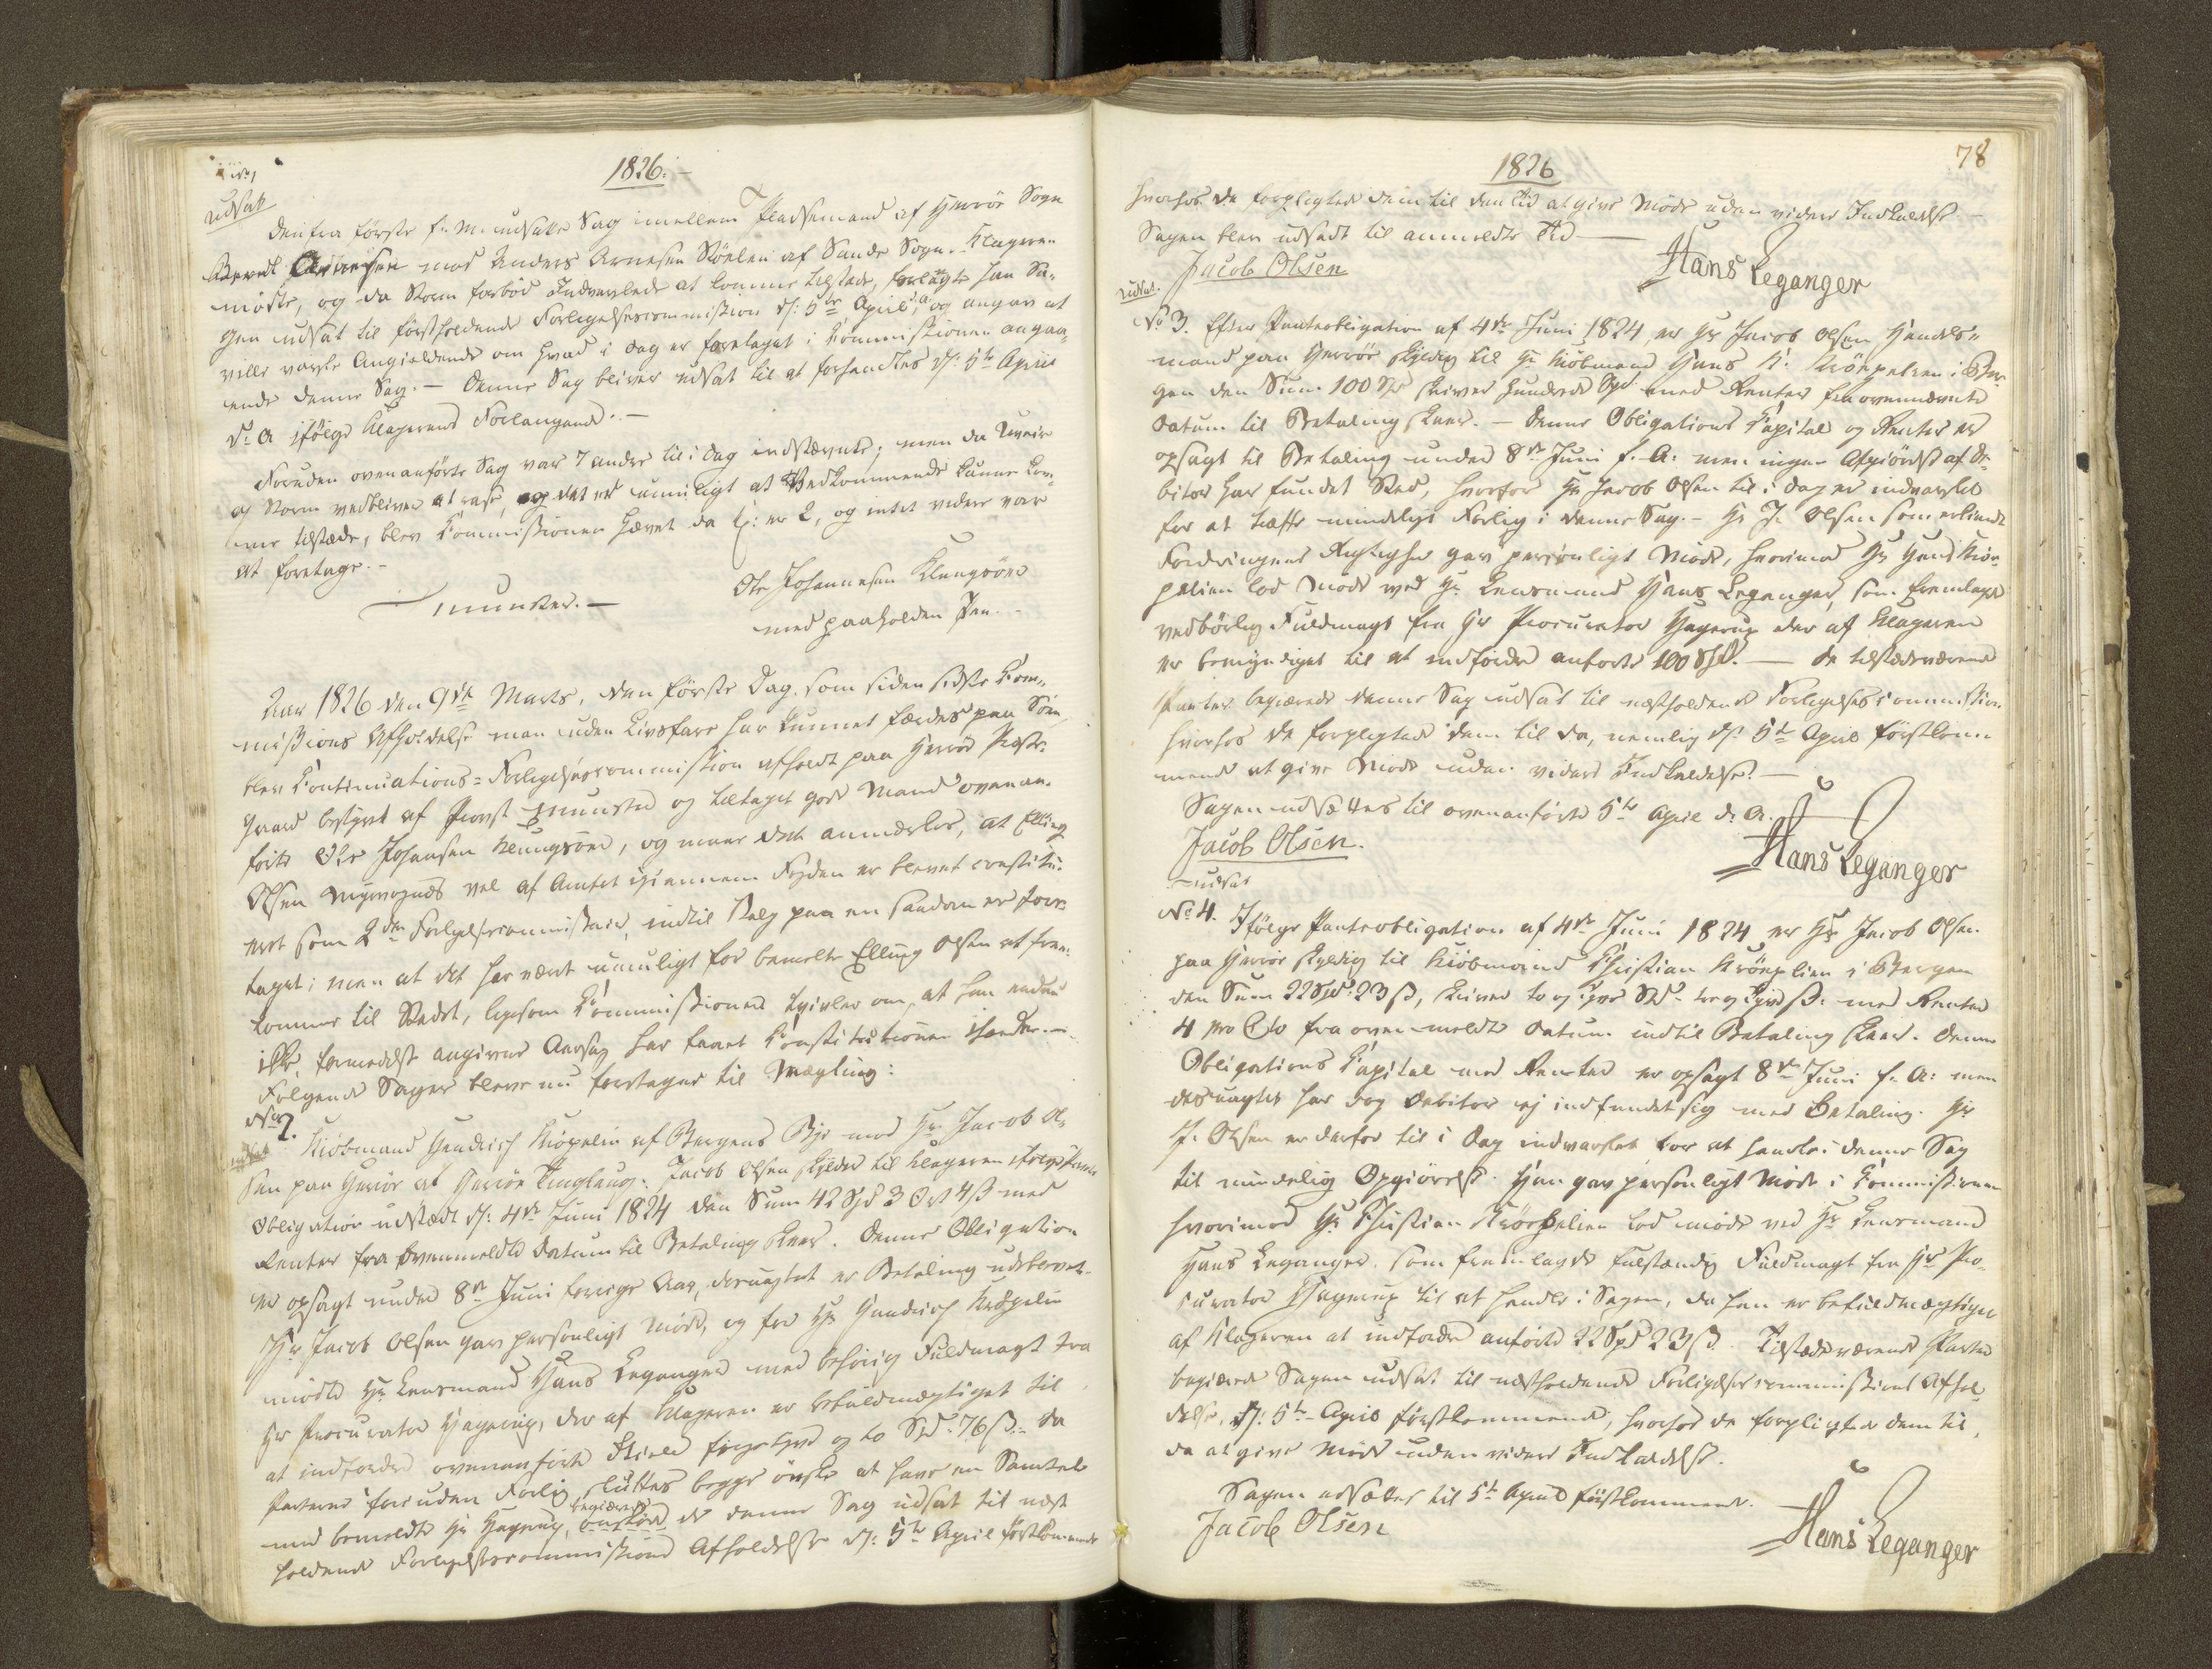 1826.
udsat
Den fra første f: M. udsatte Sag imellem Pladsemand af Herrøe Sogn
Berndt mod Anders Arnesen Støelen af Sande Sogn. Klageren
mødte, og da Storm forbød Indvarslede at komme tilstede, forlangte han Sa-
gen udsat til førstholdende Forligelsescommission d: 5te April d: A: og angav at
ville varsle Angieldende om hvad i Dag er foretaget i Commissionen angaa-
ende denne Sag. — Denne Sag bliver udsat til at forhandles d: 5te April
d: A ifølge Klagerens Forlangende. —
Foruden ovenanførte Sag var 7 andre til i Dag indstævnte; men da Uveir
og Storm vedbliver at rase, og det er umuligt at Vedkommende kunne kom-
me tilstede, blev Commissionen hævet da Kl: er 2, og intet videre var
at foretage. —
Munster. —
Ole Johannesen Kleungsøre
med paaholden Pen. -
Aar 1826 den 9de Marts, den første Dag, som siden sidste Com-
missions Afholdelse man uden Livsfare har kunnet færdes paa Søen
blev Continuations-Forligelsescommission afholdt paa Herrøe Præste-
gaard bestyret af Provst Munster og tiltaget gode Mand ovenan-
førte Ole Johansen Kleungsøre, og maae det anmærkes, at Elling
Olsen Myrvognæs vel af Amtet igiennem Fogden er blevet constitu-
eret som 2den Forligelsescommissair, indtil Valg paa en saadan er fore-
taget; men at det har været umuligt for bemeldte Elling Olsen at frem-
komme til Stedet, ligesom Commissionen tvivler om, at han endnu
ikke, formedelst angivne Aarsag har faaet Constitutionen ihænde. —
Følgende Sager bleve nu foretagne til Mægling:
No 2.
udsat
Kiøbmand Hendrich Kröpelin af Bergens Bye mod Hr: Jacob Ol-
sen paa Herrøe af Herrøe Tinglaug. Jacob Olsen skylder til Klageren ifølge Pante
Obligation udstædt d: 4de Juni 1824 den Sum 42 Spd 3 Ort 4 ß med
Renter fra ovenmeldte Datum til Betaling skeer. Denne Obligation
er opsagt under 8de Juni forrige Aar, desuagtet er Betaling udeblevet.
Hr: Jacob Olsen gav personligt Møde, og for Hr: Hendrich Kröpelin
mødte Hr: Lensmand Hans Leganger med behørig Fuldmagt fra
Hr: Procurator Hagerup, der af Klageren er befuldmægtiget til
at indfordre ovenanførte Skield fyrgetyve og to Spd: 76 ß. Da
Parterne foruden Forlig sluttes begge ønske at have en Samtale
med bemeldte Hr: Hagerup, begiærede de denne Sag udsat til næst
holdende Forligelsescommissions Afholdelse d: 5te April førstkommende
1826
78
hvorhos de forpligtede dem til den Tid at give Møde uden videre Indkaldelse —
Sagen blev udsadt til anmeldte Tid —
Jacob Olsen
Hans Leganger
udsat.
No 3. Efter Panteobligation af 4de Juni 1824, er Hr: Jacob Olsen Handels-
mand paa Herrøe skyldig til Hr: Kiøbmand Hans H: Kröepelien i Ber-
gen den Sum 100 Spd skriver Hundrede Spd med Renter fra ovennævnte
Datum til Betaling skeer. — Denne Obligations Capital og Renter er
opsagt til Betaling under 8de Juni f. A: men ingen Afgiørelse af De-
bitor har fundet Sted, hvorfor Hr: Jacob Olsen til i Dag er indvarslet
for at træffe mindeligt Forlig i denne Sag. — Hr: J. Olsen som erkiendte
Fordringens Rigtighed gav personligt Møde, hvorimod Hr: Hans Kröe-
pelien lod møde ved Hr: Lensmand Hans Leganger, som fremlagde
vedbørlig Fuldmagt fra Hr: Procurator Hagerup der af Klageren
er bemyndiget til at indfordre anførte 100 Spd. — De tilstædeværende
Parter begiærede denne Sag udsat til næstholdende Forligelsescommission
hvorhos de forpligtede dem til da, nemlig d: 5te April førstkom-
mende at give Møde uden videre Indkaldelse. —
Sagen udsættes til ovenanførte 5te April d: A.
Jacob Olsen.
Hans Leganger
udsat
No 4. Ifølge Panteobligation af 4de Juni 1824 er Hr: Jacob Olsen
paa Herrøe skyldig til Kiøbmand Christian Kröeplien i Bergen
den Sum 22 Spd: 23 ß, skriver to og tyve Spd: tre og tyve ß. med Renter
4 pro Cto fra ovenmeldte Datum indtil Betaling skeer. Denne
Obligations Capital med Renter er opsagt 8de Juni f. A: men
desuagtet har dog Debitor ej indfundet sig med Betaling. Hr:
J. Olsen er derfor til i Dag indvarslet for at handle i denne Sag
til mindelig Opgiørelse. Han gav personligt Møde i Commissionen
hvorimod Hr: Christian Kröepelien lod møde ved Hr: Lensmand
Hans Leganger, som fremlagde fulstændig Fuldmagt fra Hr: Pro-
curator Hagerup til at handle i Sagen, da han er befuldmægtiget
af Klageren at indfordre anførte 22 Spd 23 ß. Tilstædeværende Parter
begiærede Sagen udsat til næstholdende Forligelsescommissions Afhol-
delse, d: 5te April førstkommende, hvorhos de forpligtede dem til,
da at give Møde uden videre Indkaldelse.
Sagen udsættes til 5te April førstkommende.
Jacob Olsen
Hans Leganger